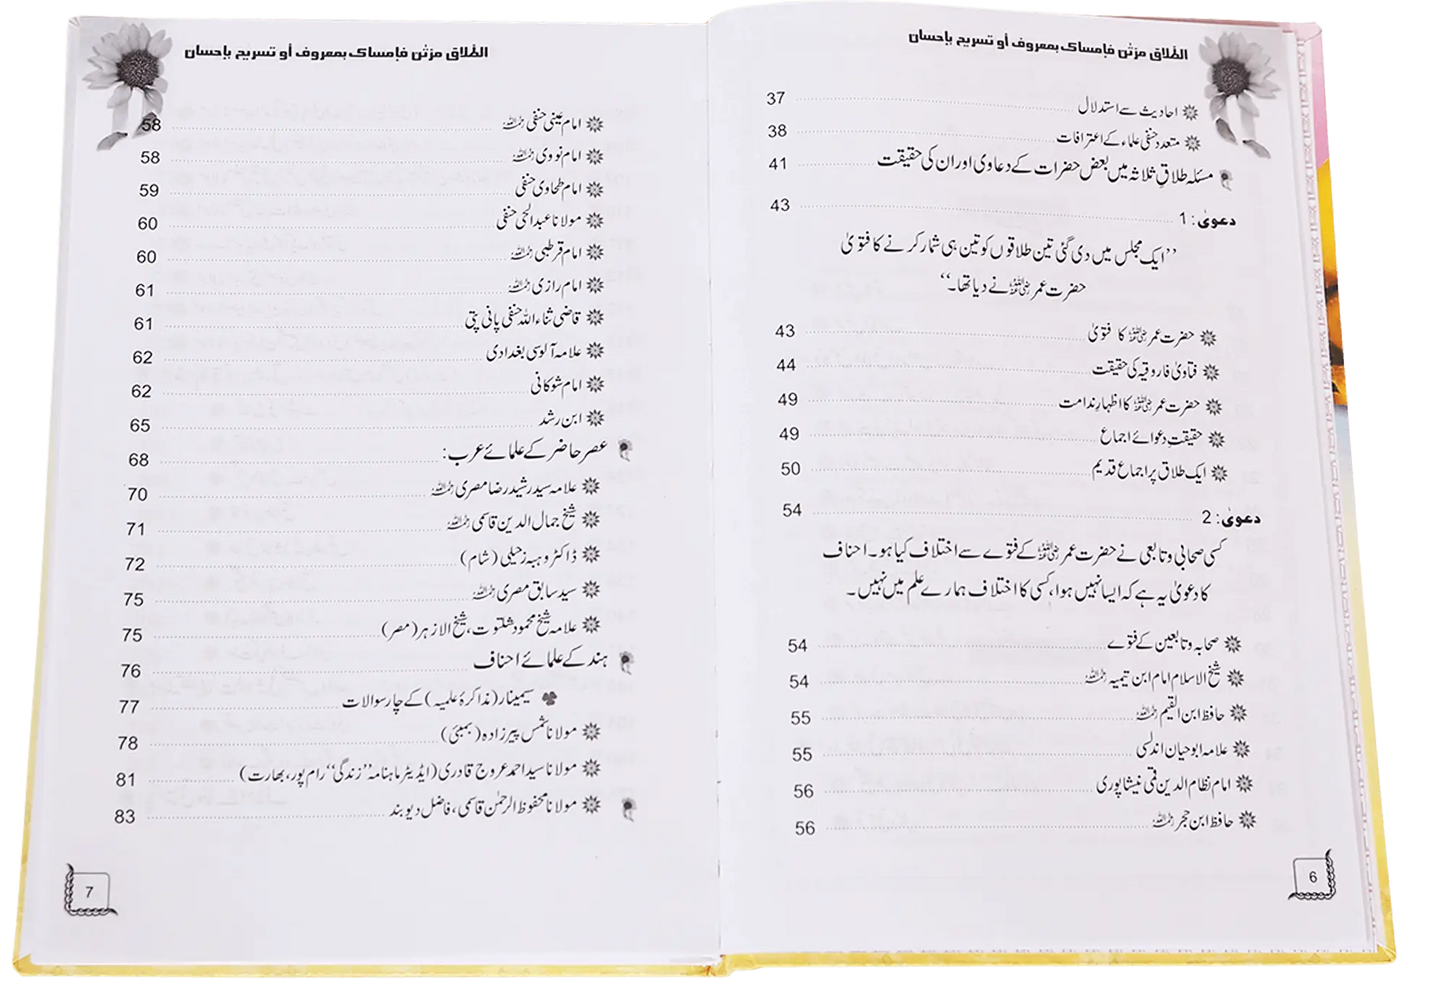 الطلاق مرتٰن فإمساک بمعروف أو تسریح بإحسان
احادیث سے استدلال 37
متعدد حنفی علماء کے اعترافات 38
مسئلہ طلاقِ ثلاثہ میں بعض حضرات کے دعاوی اور ان کی حقیقت 41
دعویٰ: 1 43
’’ایک مجلس میں دی گئی تین طلاقوں کو تین ہی شمار کرنے کا فتویٰ
حضرت عمر رضی اللہ عنہ نے دیا تھا۔‘‘
حضرت عمر رضی اللہ عنہ کا فتویٰ 43
فتاویٰ فاروقیہ کی حقیقت 44
حضرت عمر رضی اللہ عنہ کا اظہارِ ندامت 49
حقیقتِ دعوائے اجماع 49
ایک طلاق پر اجماعِ قدیم 50
دعویٰ: 2 54
کسی صحابی و تابعی نے حضرت عمر رضی اللہ عنہ کے فتوے سے اختلاف کیا ہو۔ احناف
کا دعویٰ یہ ہے کہ ایسا نہیں ہوا، کسی کا اختلاف ہمارے علم میں نہیں۔
صحابہ و تابعین کے فتوے 54
شیخ الاسلام امام ابن تیمیہ رحمہ اللہ 54
حافظ ابن القیم رحمہ اللہ 55
علامہ ابو حیان اندلسی 55
امام نظام الدین قمی نیشاپوری 56
حافظ ابن حجر رحمہ اللہ 56
6
الطلاق مرتٰن فإمساک بمعروف أو تسریح بإحسان
امام عینی حنفی رحمہ اللہ 58
امام نووی رحمہ اللہ 58
امام طحاوی حنفی 59
مولانا عبدالحی حنفی 60
امام قرطبی رحمہ اللہ 60
امام رازی رحمہ اللہ 61
قاضی ثناء اللہ حنفی پانی پتی 61
علامہ آلوسی بغدادی 62
امام شوکانی 62
ابن رشد 65
عصر حاضر کے علمائے عرب: 68
علامہ سید رشید رضا مصری رحمہ اللہ 70
شیخ جمال الدین قاسمی رحمہ اللہ 71
ڈاکٹر وہبہ زحیلی (شام) 72
سید سابق مصری رحمہ اللہ 75
علامہ شیخ محمود شلتوت، شیخ الازہر (مصر) 75
ہند کے علمائے احناف 76
سیمینار (مذاکرۂ علمیہ) کے چار سوالات 77
مولانا شمس پیرزادہ (بمبئی) 78
مولانا سید احمد عروج قادری (ایڈیٹر ماہنامہ ’’زندگی‘‘ رام پور، بھارت) 81
مولانا محفوظ الرحمٰن قاسمی، فاضل دیوبند 83
7